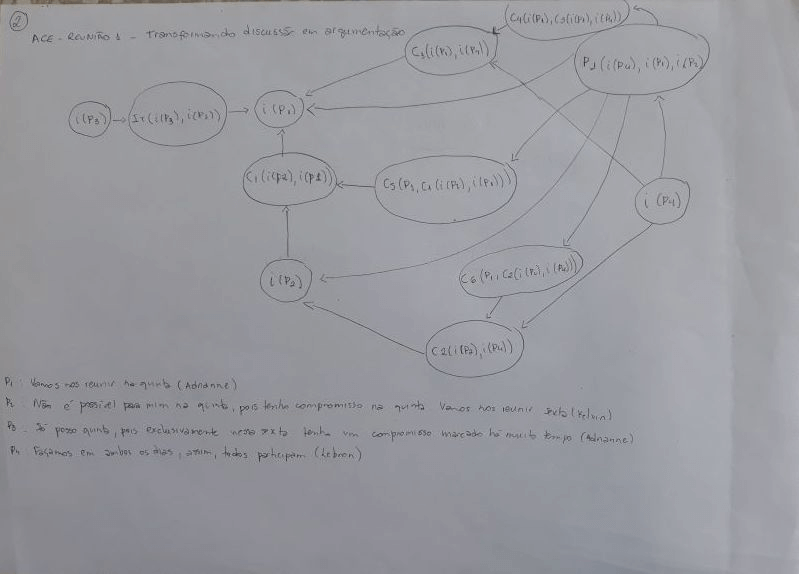 2
ACE - REUNIÃO 1 - Transformando discussão em argumentação
C4(i(P1), C3(i(P1), i(P4)))
C3(i(P1), i(P4))
P1(i(P4), i(P1), i(P2))
i(P3)
Ir(i(P3), i(P1))
i(P1)
C1(i(P2), i(P1))
C5(P1, C1(i(P2), i(P1)))
i(P4)
i(P2)
C6(P1, C2(i(P2), i(P4)))
C2(i(P2), i(P4))
P1: Vamos nos reunir na quinta (Adrianne)
P2: Não é possível para mim na quinta, pois tenho compromisso na quinta Vamos nos reunir sexta (Kelvin)
P3: Só posso quinta, pois exclusivamente nessa sexta tenho um compromisso marcado há muito tempo (Adrianne)
P4: Façamos em ambos os dias, assim, todos participam (Lebron)